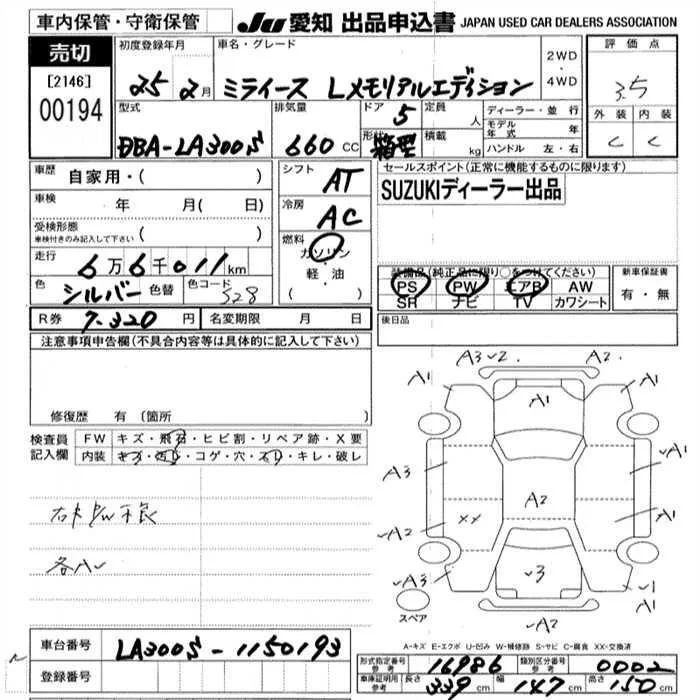 車内保管・守衛保管
JU 愛知 出品申込書 JAPAN USED CAR DEALERS ASSOCIATION
売切
[2146]
00194
初度登録年月
25年 2月
車名・グレード
ミライース Lメモリアルエディション
2WD
・
4WD
評価点
3.5
外装 内装
C C
型式
DBA-LA300S
排気量
660 CC
ドア 5
形状 箱型
定員 人
積載 kg
ディーラー・並行
モデル年式 年
ハンドル 左・右
車歴 自家用・( )
車検 年 月( 日)
受検形態
車検付きのみ記入して下さい ( )
走行 6万6千011km
色 シルバー 色替 色コード S28
R券 7.320円 名変期限 月 日
シフト AT
冷房 AC
燃料
ガソリン
軽・油
( )
セールスポイント(正常に機能するものに限ります)
SUZUKIディーラー出品
装備品(純正品に限り○をつけてください)
PS PW エアB AW
SR ナビ TV カワシート
新車保証書
有・無
後日品
注意事項申告欄(不具合内容等は具体的に記入して下さい)
修復歴 有(箇所
検査員記入欄
FW キズ・飛石・ヒビ割・リペア跡・X要
内装 キズ・汚レ・コゲ・穴・スレ・キレ・破レ
右ドP/W不良
各A
A3 2. A2.
A1 A1 A1
A3 A2 A1
A2 XX A1
A3 3 1
A2
スペア
A-キズ E-エクボ U-凹み W-補修跡 S-サビ C-腐食 XX-交換済
車台番号 LA300S-1150193
登録番号
形式指定番号 参考 16986 類別区分番号 参考 0002
車庫証明用 参考 長さ 339cm 幅 147cm 高さ 150cm